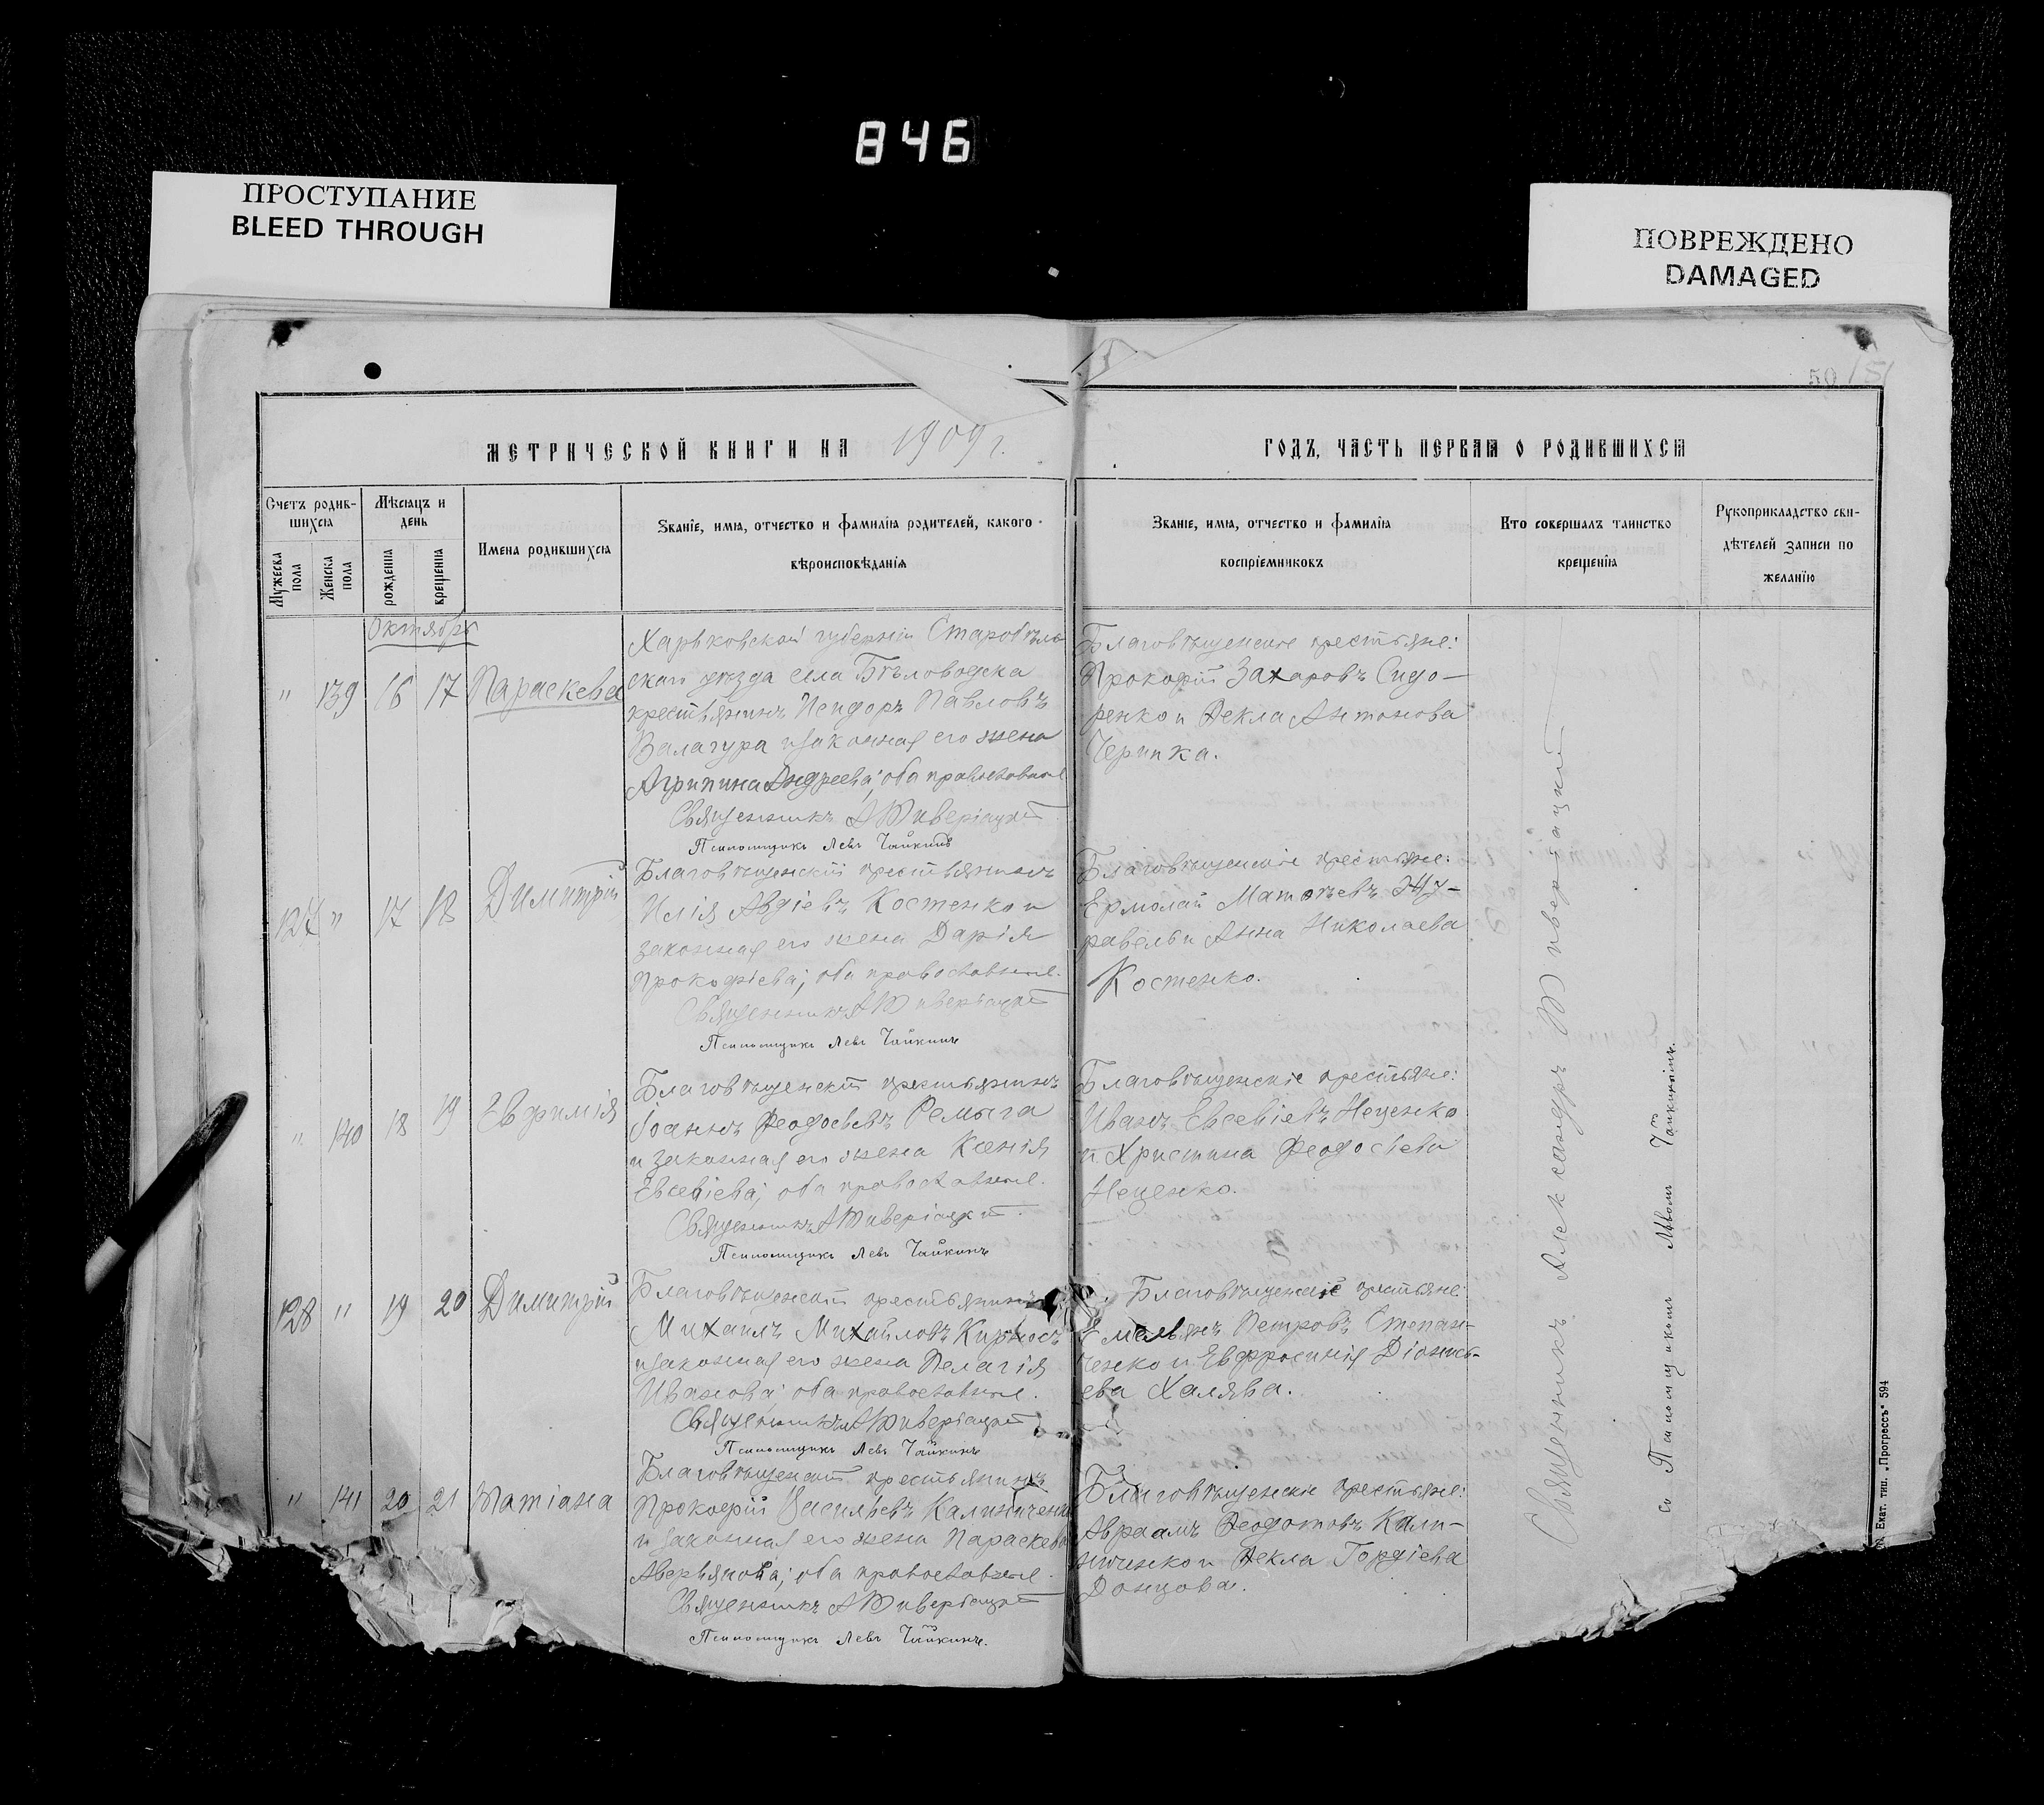 846
ПРОСТУПАНИЕ
BLEED THROUGH
ПОВРЕЖДЕНО
DAMAGED
50
51
МЕТРИЧЕСКОЙ КНИГИ НА 1909 г.
ГОДЪ, ЧАСТЬ ПЕРВАЯ О РОДИВШИХСЯ
Счетъ родив-
шихся
Мужеска пола
Женска пола
Мѣсяцъ и
день
рожденія
крещенія
Имена родившихся
Званіе, имя, отчество и фамилія родителей, какого
вѣроисповѣданія
Званіе, имя, отчество и фамилія
воспріемниковъ
Кто совершалъ таинство
крещенія
Рукоприкладство сви-
дѣтелей записи по
желанію
Октябрь
" 139 16 17 Параскева
Харьковской губерніи Старобѣль
скаго уѣзда села Бѣловодска
крестьянинъ Исидоръ Павловъ
Валагура и законная его жена
Агрипина Андреева; оба православные
Священникъ А Тиверіацкій
Псаломщикъ Левъ Чайкинъ
Благовѣщенскіе крестьяне:
Прокофій Захаровъ Сидо-
ренко и Фекла Антонова
Черипка.
127 " 17 18 Димитрій
Благовѣщенскій крестьянинъ
Илія Авдіевъ Костенко и
законная его жена Дарія
Прокофіева; оба православные.
Священникъ А Тиверіацкій
Псаломщикъ Левъ Чайкинъ
Благовѣщенскіе крестьяне:
Ермолай Матвѣевъ Жу-
равель и Анна Николаева
Костенко.
" 140 18 19 Евфимія
Благовѣщенскій крестьянинъ
Іоаннъ Феодосьевъ Ремыга
и законная его жена Ксенія
Евсевіева; оба православные.
Священникъ А Тиверіацкій
Псаломщикъ Левъ Чайкинъ
Благовѣщенскіе крестьяне:
Иванъ Евсевіевъ Неценко
и Христина Феодосіева
Неценко.
128 " 19 20 Димитрій
Благовѣщенскій крестьянинъ
Михаилъ Михайловъ Кирносъ
и законная его жена Пелагія
Иванова; оба православные.
Священникъ А Тиверіацкій
Псаломщикъ Левъ Чайкинъ
Благовѣщенскіе крестьяне:
Емельянъ Петровъ Степан-
ченко и Евфросинія Діонись-
ева Халява.
" 141 20 21 Татіана
Благовѣщенскій крестьянинъ
Прокофій Васильевъ Калиниченко
и законная его жена Параскева
Аверьянова; оба православные.
Священникъ А Тиверіацкій
Псаломщикъ Левъ Чайкинъ.
Благовѣщенскіе крестьяне:
Авраамъ Феодотовъ Кали-
ниченко и Фекла Гордіева
Донцова.
Священникъ Александръ Тиверіацкій
съ Псаломщикомъ Львомъ Чайкинымъ.
Екат. тип. „Прогрессъ" 594